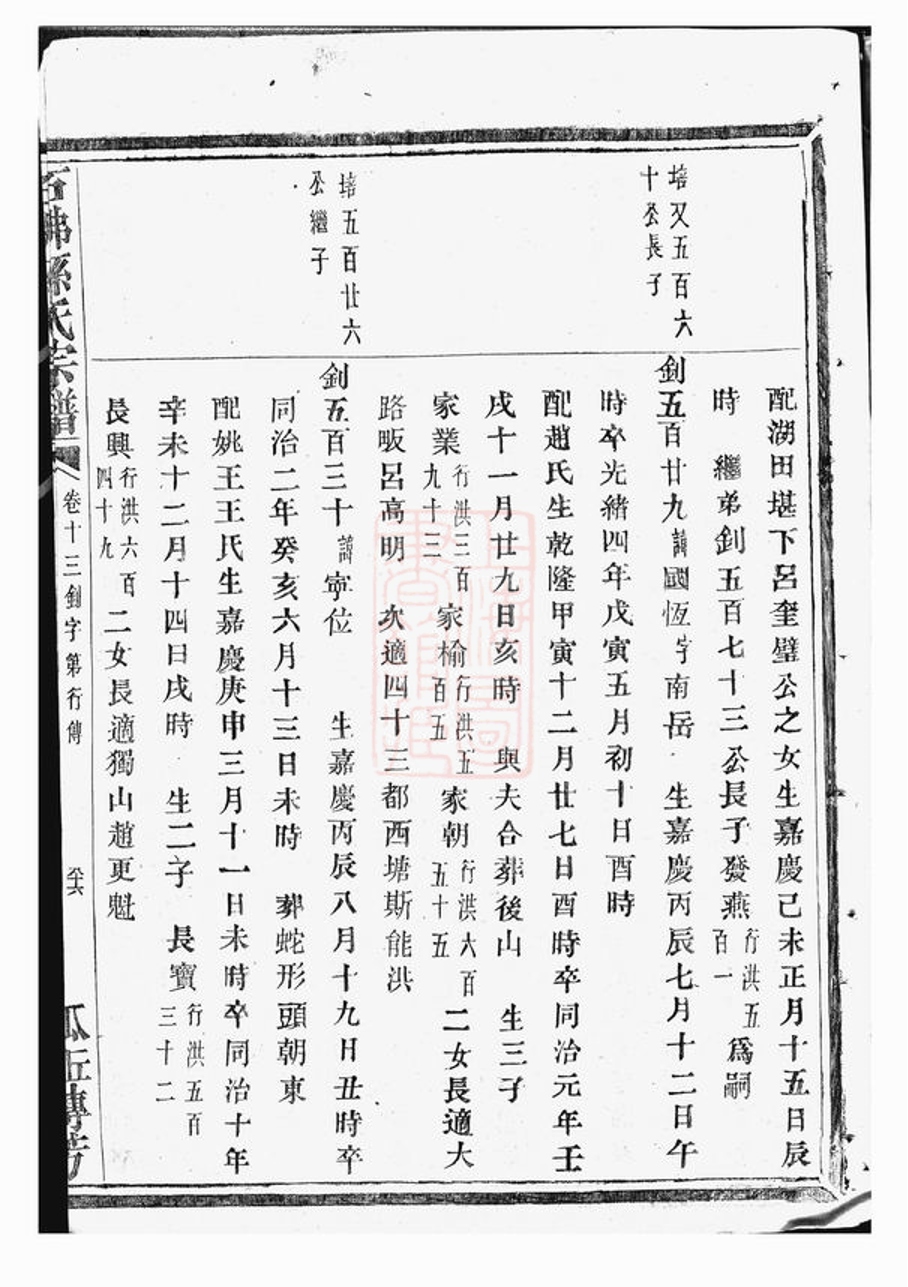 培又五百六
十公長子
配湖田堪下呂奎璧公之女生嘉慶己未正月十五日辰
時　繼弟釗五百七十三公長子發燕行洪五百一爲嗣
釗五百廿九諱國恆字南岳　生嘉慶丙辰七月十二日午
時卒光緒四年戊寅五月初十日酉時
配趙氏生乾隆甲寅十二月廿七日酉時卒同治元年壬
戌十一月廿九日亥時　與夫合葬後山　生三子
家業行洪三百九十三　家榆行洪五百五　家朝行洪六百五十五　二女長適大
路畈呂高明　次適四十三都西塘斯能洪
培五百廿六
公繼子
釗五百三十諱寧位　生嘉慶丙辰八月十九日丑時卒
同治二年癸亥六月十三日未時　葬蛇形頭朝東
配姚王王氏生嘉慶庚申三月十一日未時卒同治十年
辛未十二月十四日戌時　生二子　長寶行洪五百三十二
長興行洪六百四十九　二女長適獨山趙更魁
石佛孫氏宗譜　卷十三釗字第行傳　六十六　瓜丘傳芳
上海圖書館藏